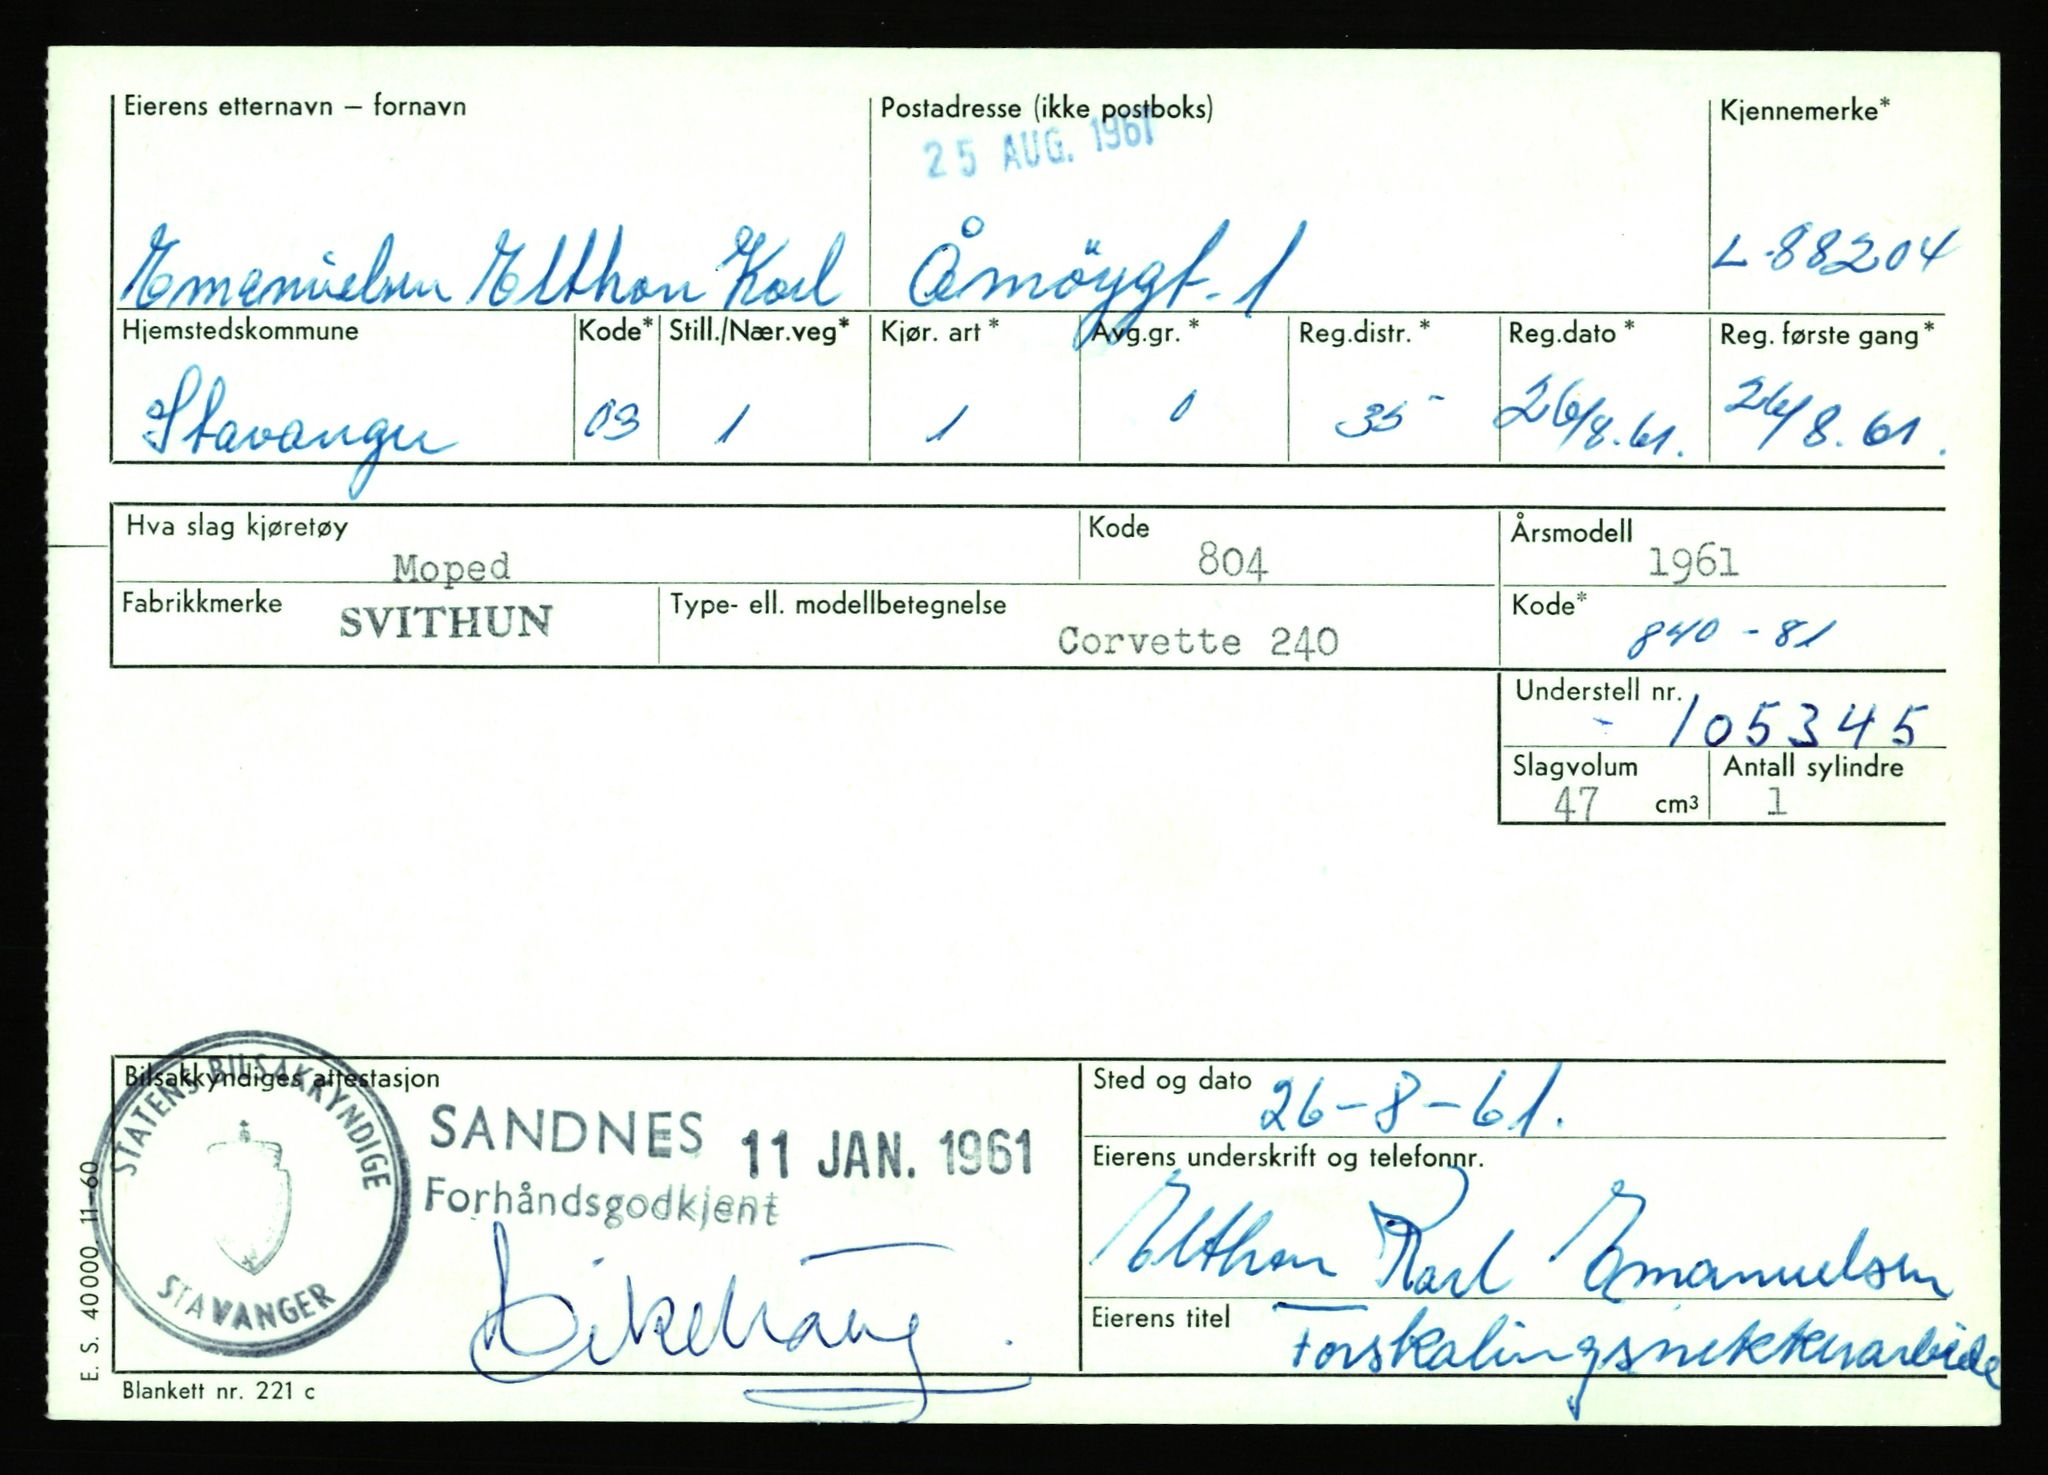 Eierens etternavn – fornavn
Postadresse (ikke postboks)
Kjennemerke*
25 AUG. 1961
Emanuelsen Elthon Karl
Åmøygt. 1
L-88204
Hjemstedskommune Kode* Still./Nær.veg* Kjør. art* Avg.gr.* Reg.distr.* Reg.dato* Reg. første gang*
Stavanger 03 1 1 0 35 26/8.61. 26/8.61.
Hva slag kjøretøy Kode Årsmodell
Moped 804 1961
Fabrikkmerke Type- ell. modellbetegnelse Kode*
SVITHUN Corvette 240 840-81
Understell nr.
- 105345
Slagvolum Antall sylindre
47 cm3 1
Bilsakkyndiges attestasjon
STATENS BILSAKKYNDIGE
STAVANGER
SANDNES 11 JAN. 1961
Forhåndsgodkjent
Sted og dato 26-8-61.
Eierens underskrift og telefonnr.
Elthon Karl Emanuelsen
Eierens titel Forskalingsnekkerarbeide
E. S. 40000. 11-60
Blankett nr. 221 c